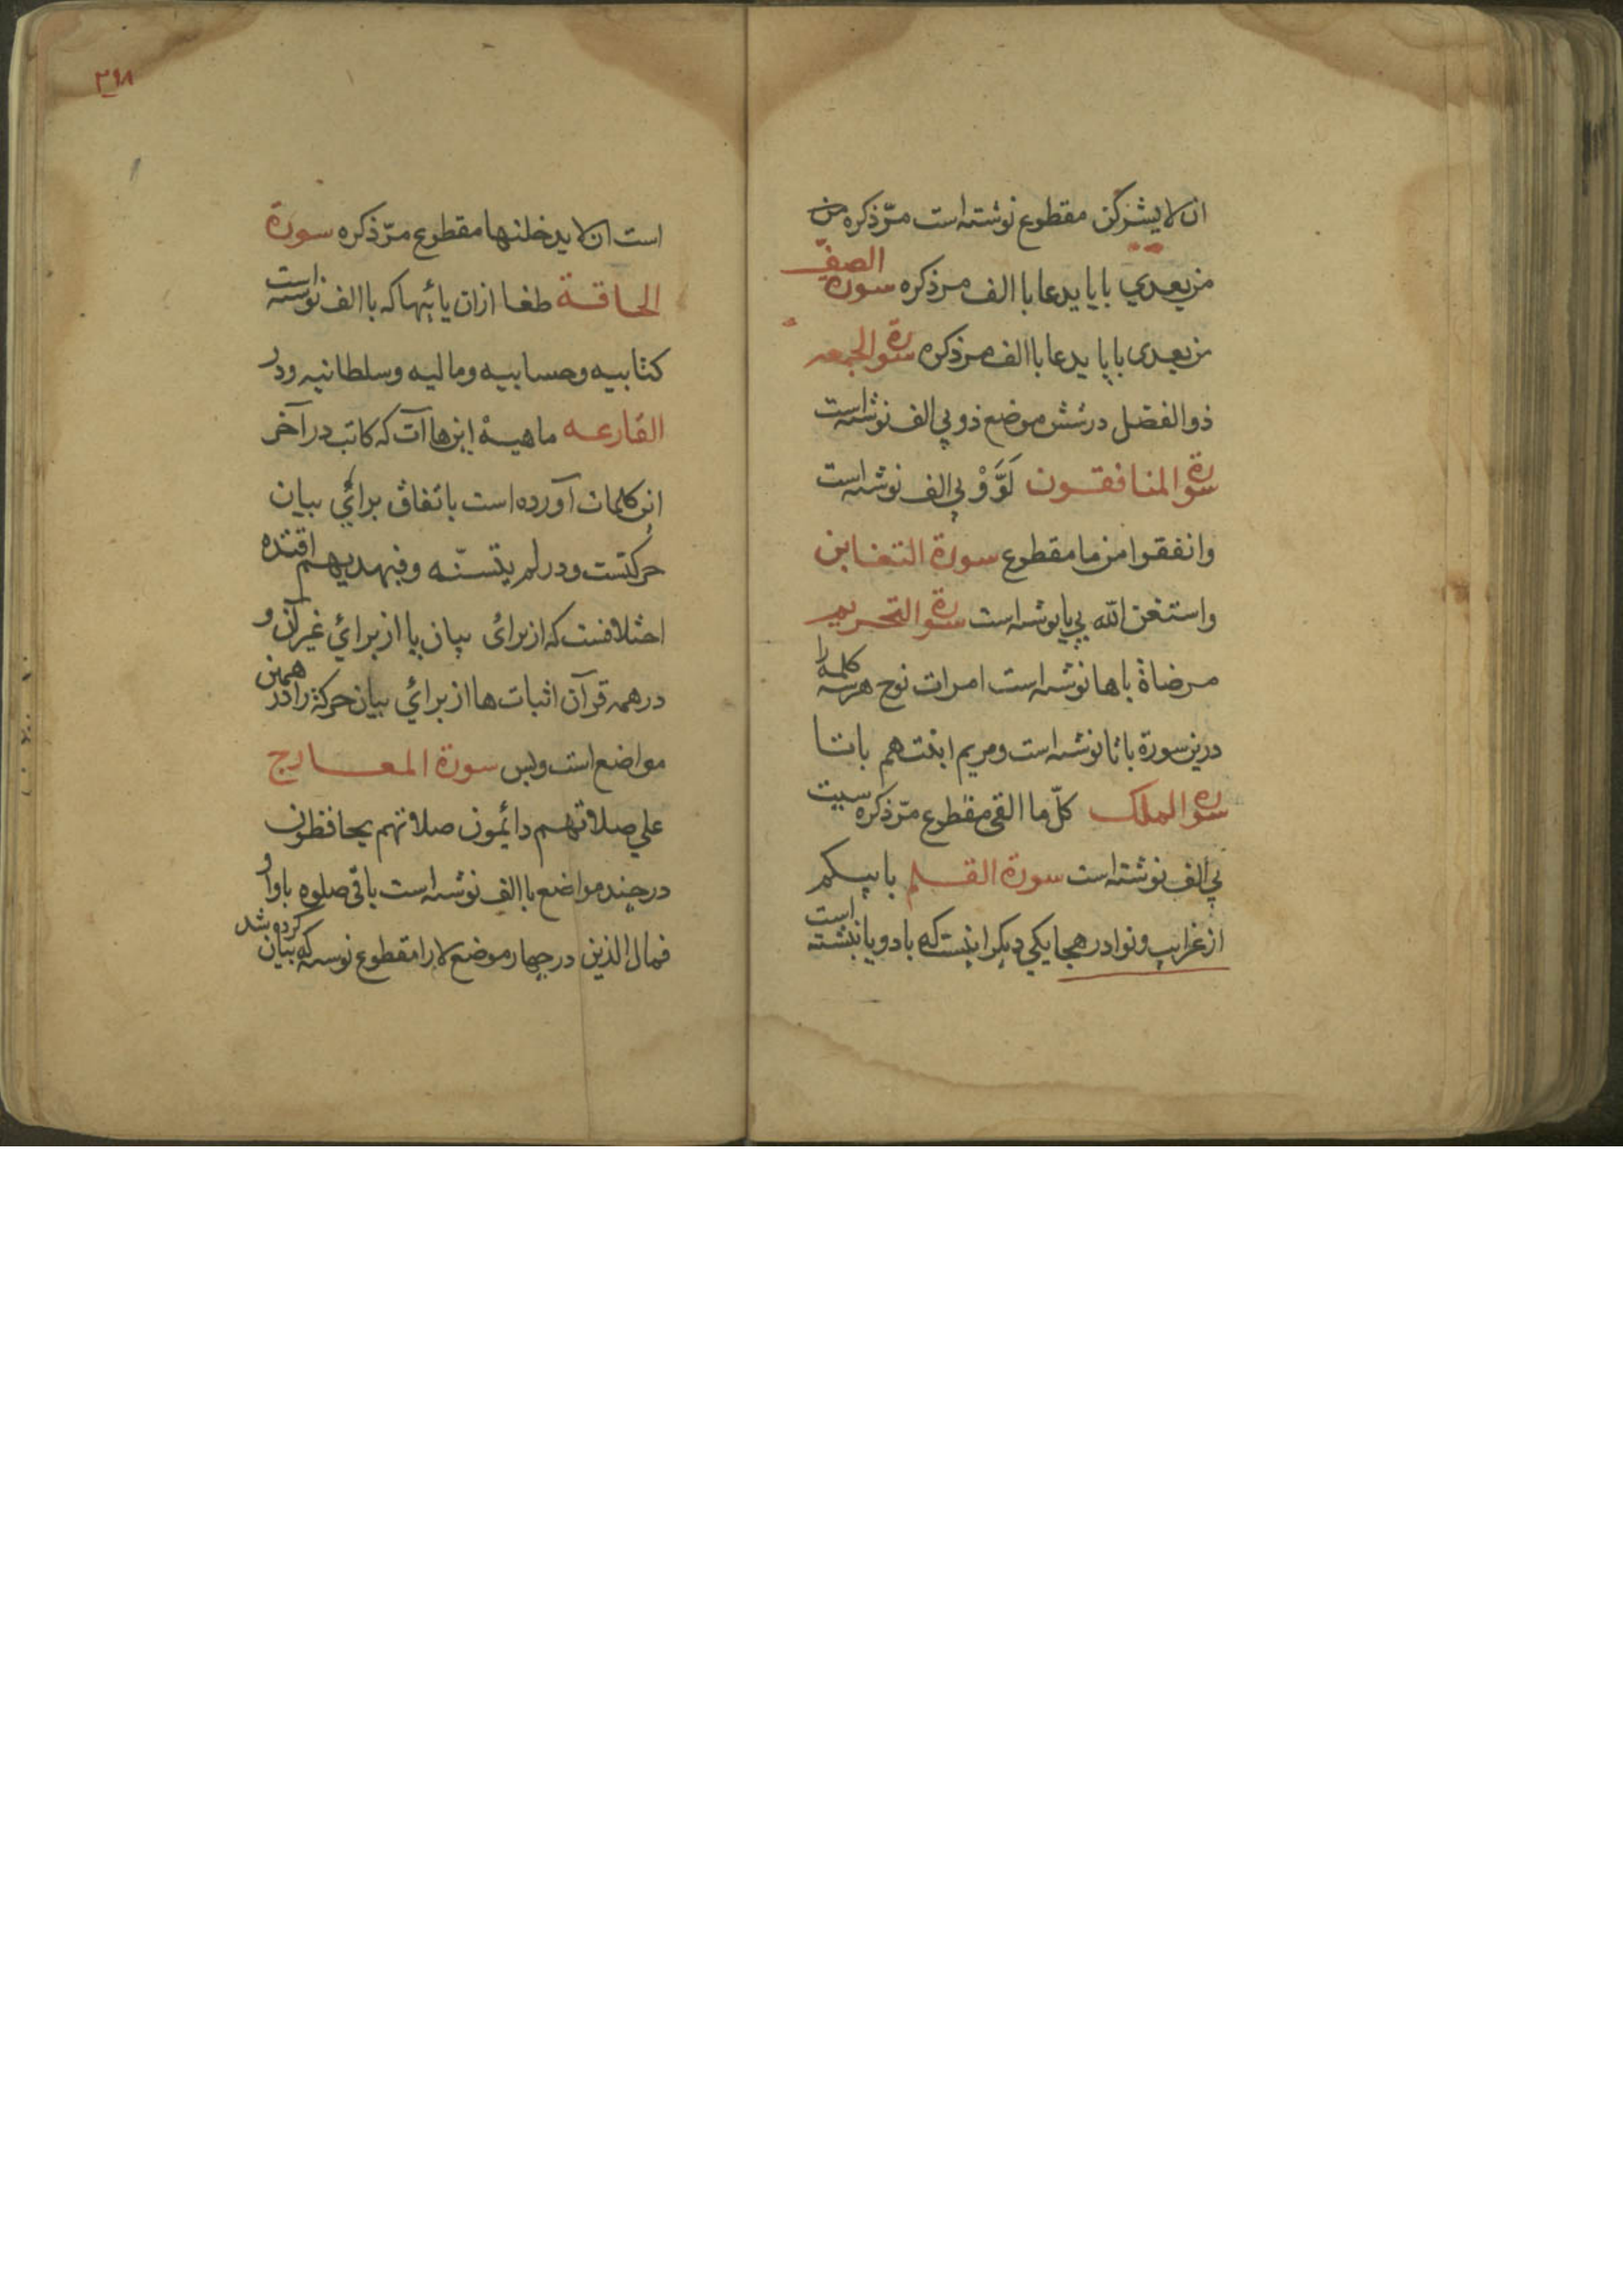 ان لا یشرکن مقطوع نوشته است مرّ ذکره من
من بعدي با یا یدعا با الف مر ذکره سورة الصفّ
من بعدی با یا یدعا با الف مر ذکره سورة الجمعه
ذو الفضل در شش موضع ذو بي الف نوشته است
سورة المنافقون لَوَّوْ بي الف نوشته است
وانفقوا من ما مقطوع سورة التغابن
واستغن الله بي یا نوشته است سورة التحریم
مرضاة با ها نوشته است امرات نوح هر سه کلمه را
درین سورة با تا نوشته است ومریم ابنت هم با تا
سوره الملک کلّ ما القی مقطوع مرّ ذکره سیٔت
بي الف نوشته است سورة القلم باییکم
از غرایب ونوادر هجا یکی دیکر اینست که با دو یا نبشته است
۲۹۸
است ان لا یدخلنها مقطوع مرّ ذکره سورة
الحاقة طغا ازان یائیها که با الف نوشته است
کتابیه وحسابیه ومالیه وسلطانیه ودر
القارعه ماهیهْ این هاآت که کاتب در آخر
این کلمات آورده است باتفاق برائي بیان
حرکتست ودر لم یتسنّه وفبهدیهم اقتده
اختلافست که از برائی بیان یا از برائي غیر آن و
در همه قرآن اثبات ها از برائي بیان حرکة را در همین
مواضع است وبس سورة المعارج
علي صلاتهم دائمون صلاتهم یحافظون
در چند مواضع با الف نوشته است باقی صلوه با واو
فمال الذین در چهار موضع لا را مقطوع نوسه که بیان کرده شد